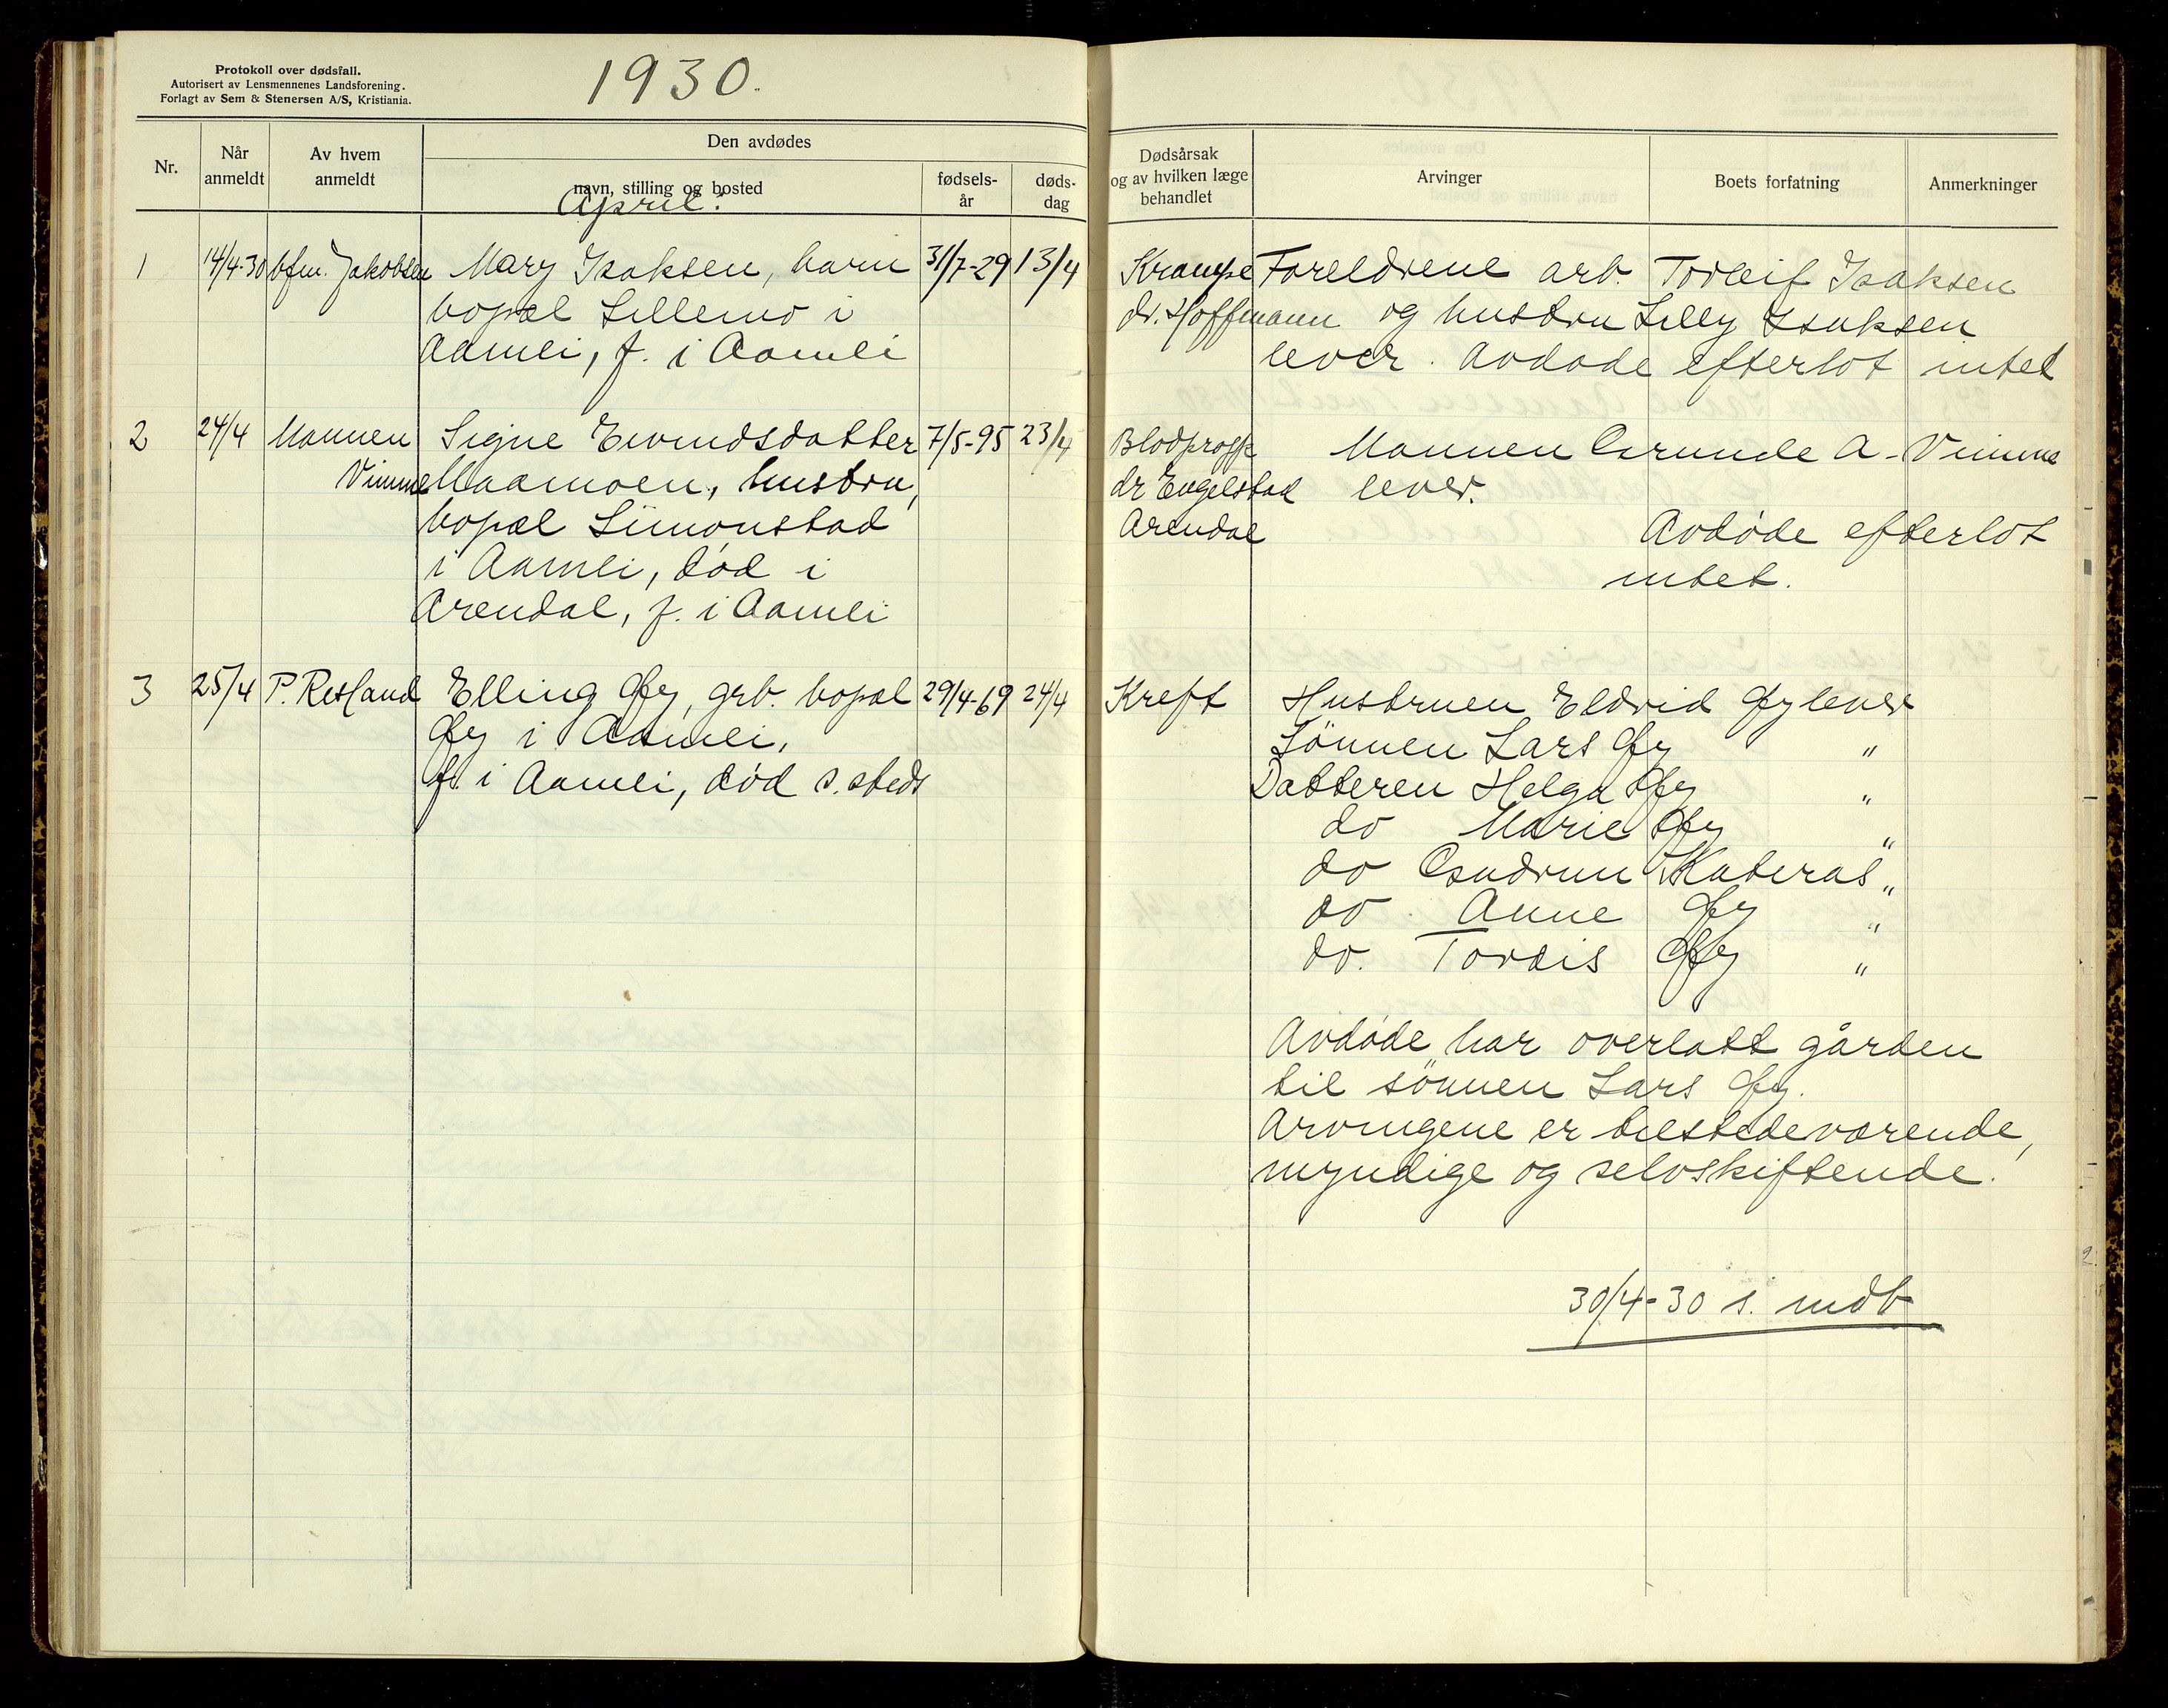 Protokoll over dødsfall.
Autorisert av Lensmennenes Landsforening.
Forlagt av Sem & Stenersen A/S, Kristiania.
1930.
Nr.
Når anmeldt
Av hvem anmeldt
Den avdødes
navn, stilling og bosted
fødsels-år
døds-dag
Dødsårsak
og av hvilken læge
behandlet
Arvinger
Boets forfatning
Anmerkninger
April:
1 14/4-30 bfm. Jakobsen Mary Isaksen, barn 31/7-29 13/4
bopæl Lillemo i
Aamli, f. i Aamli
Krampe
dr. Hoffmann
Foreldrene arb. Torleif Isaksen
og hustru Lilly Isaksen
lever. Avdøde efterlot intet
2 24/4 Mannen Signe Eivindsdatter 7/5-95 23/4
Vimme Maamoen, hustru,
bopæl Simonstad
i Aamli, død i
Arendal, f. i Aamli
Blodpropp
dr Engelstad
Arendal
Mannen Gunde A. Vimme
lever.
Avdøde efterlot
intet.
3 25/4 P. Resland Elling Øy, grb. bopæl 29/4-69 24/4
Øy i Aamli,
f. i Aamli, død s. steds
Kreft
Hustruen Eldrid Øy lever
Sönnen Lars Øy "
Datteren Helga Øy "
do Marie Øy "
do Gudrun Kateraas "
do Anne Øy "
do. Tordis Øy "
Avdøde har overlatt gården
til sönnen Lars Øy.
Arvingene er tilstedeværende,
myndige og selvskiftende.
30/4-30 s. mdb